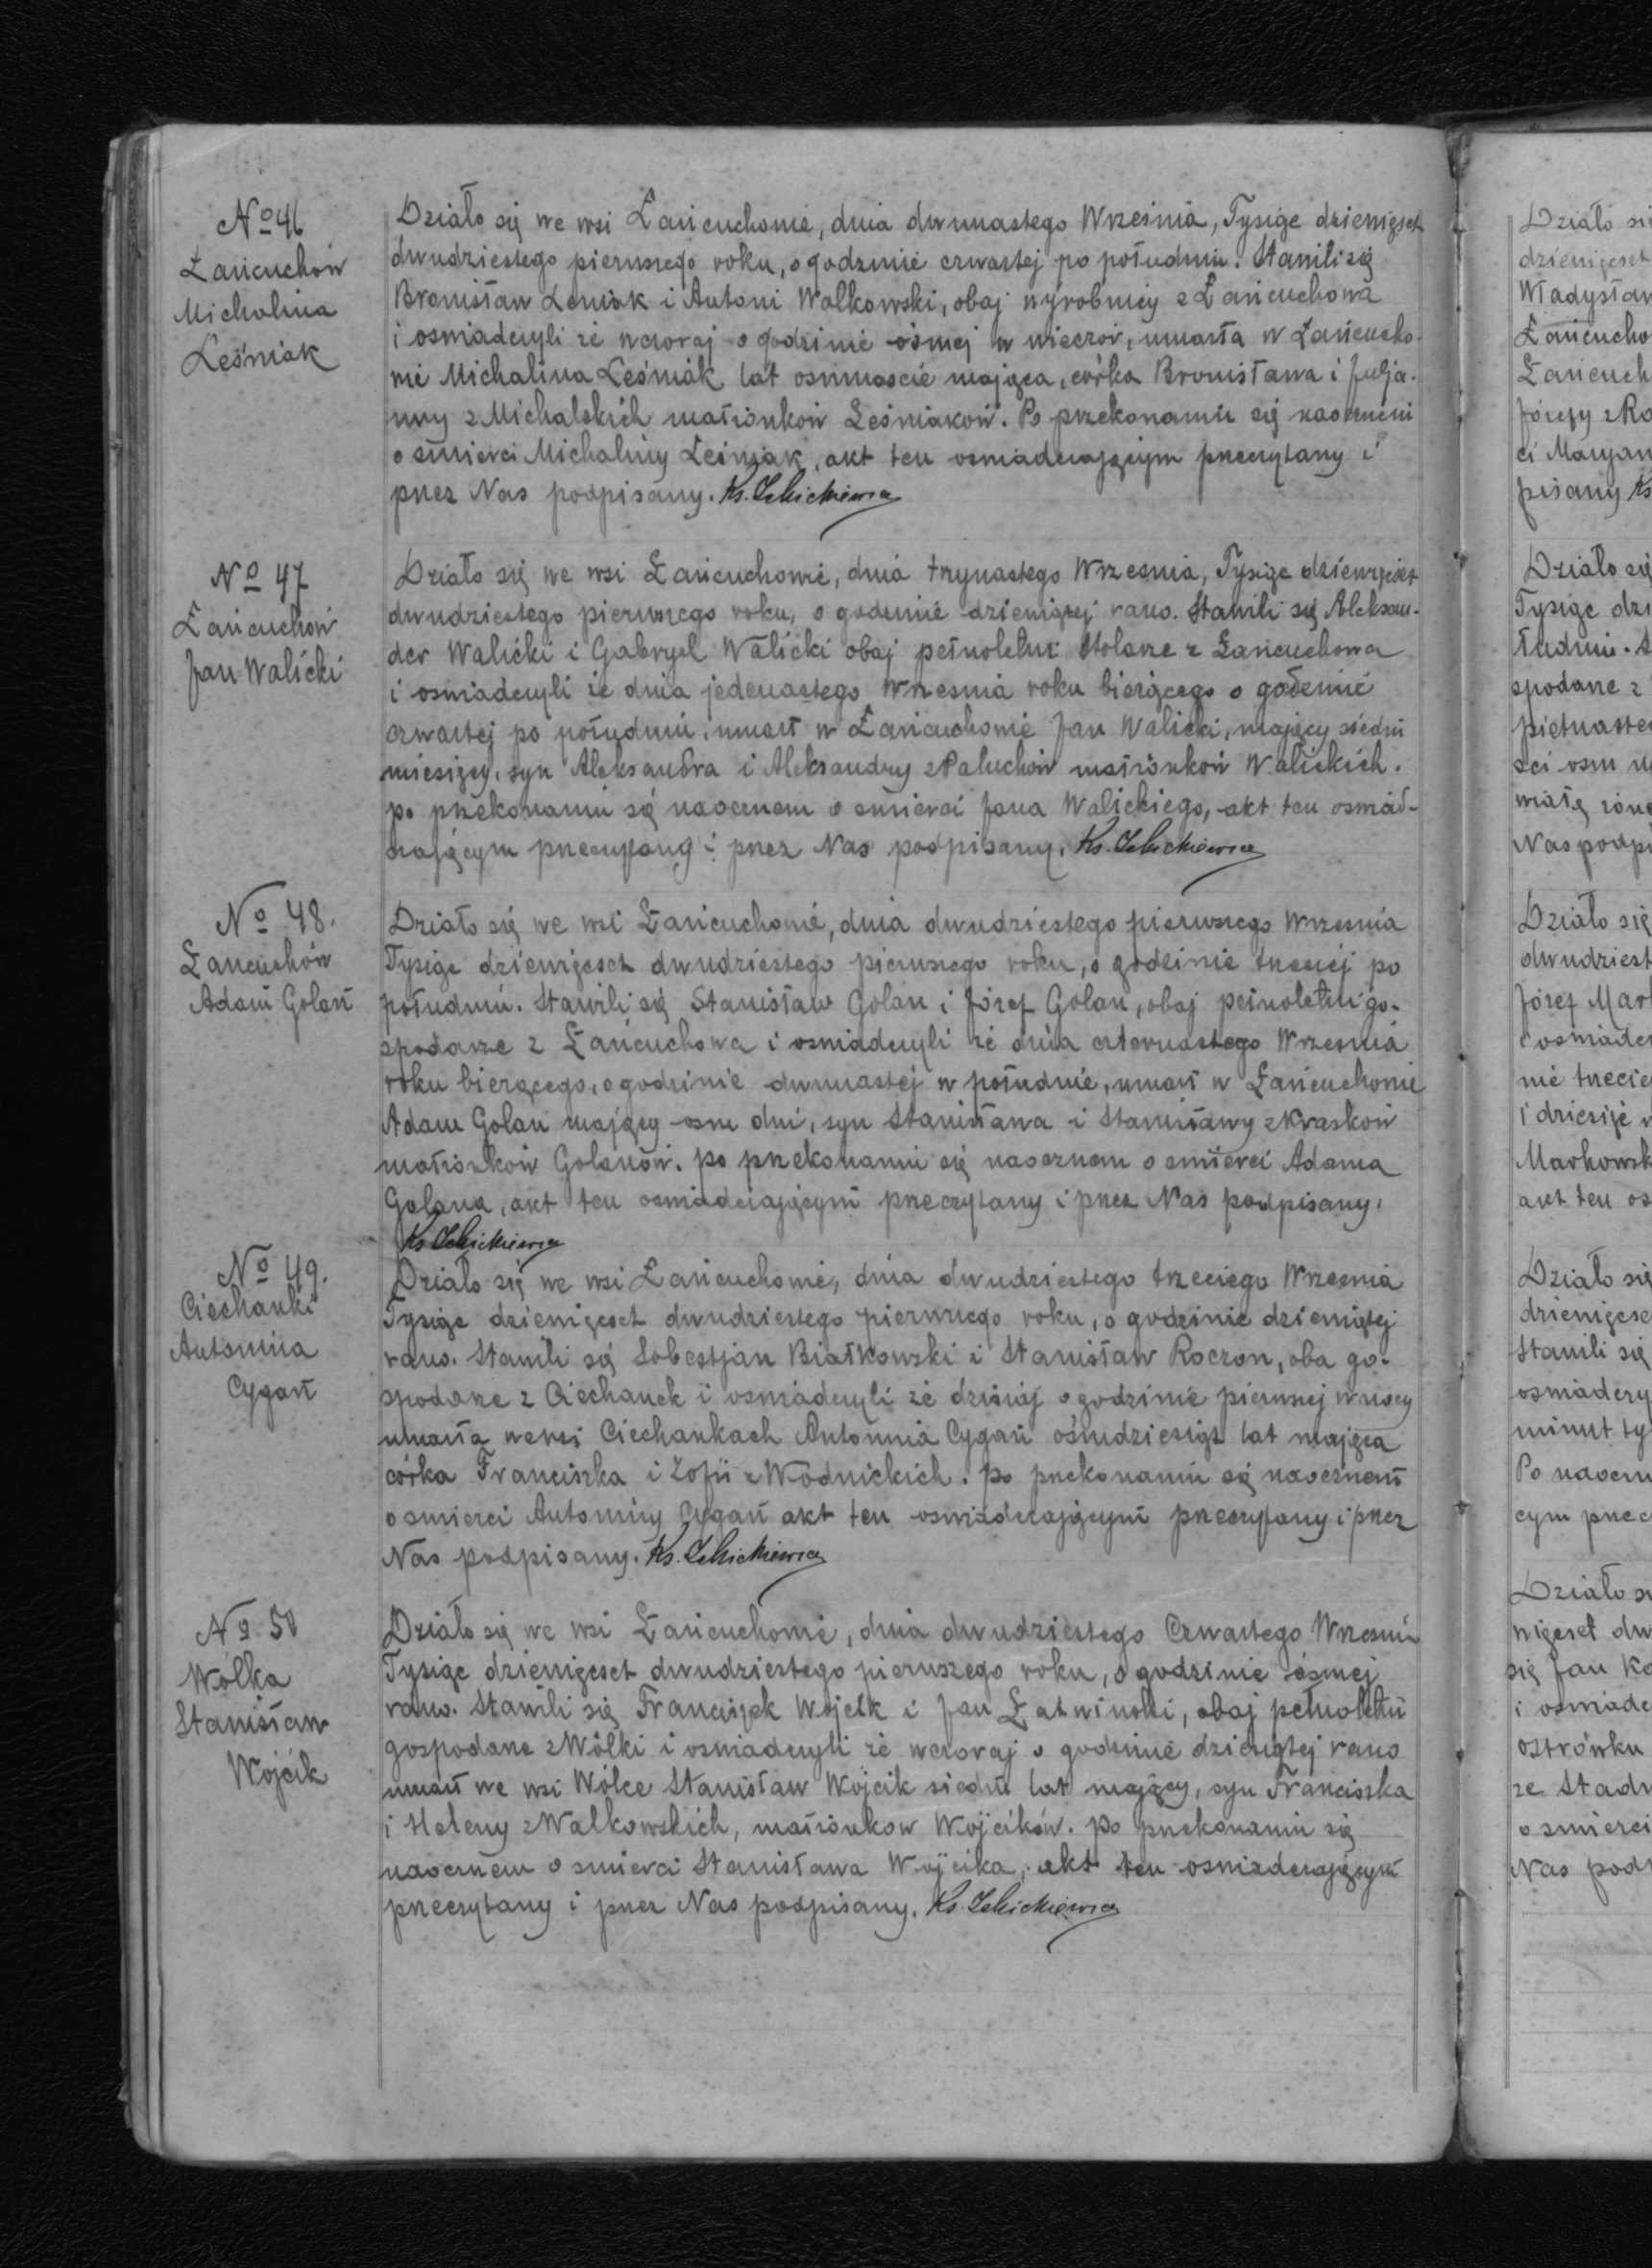 No 46
Łańcuchów
Michalina
Leśniak
Działo się we wsi Łańcuchowie, dnia dwunastego Września, Tysiąc dziewięset
dwudziestego pierwszego roku, o godzinie czwartej po południu. Stawili się
Bronisław Leśniak i Antoni Walkowski, obaj wyrobnicy z Łańcuchowa
i oswiadczyli że wczoraj o godzinie ósmej w wieczór, umarła w Łańcucho-
wie Michalina Leśniak lat osimnascie mająca, córka Bronisława i Julja-
nny z Michalskich małżonków Leśniaków. Po przekonaniu się naocznem
o śmierci Michaliny Leśniak, akt ten oswiadczającym przeczytany i
przez Nas podpisany. Ks.
No 47
Łańcuchów
Jan Walicki
Działo się we wsi Łańcuchowie, dnia trzynastego Wrzesnia, Tysiąc dziewięset
dwudziestego pierwszego roku, o godzinie dziewiątej rano. Stawili się Aleksan-
der Walicki i Gabryel Walicki obaj pełnoletni stolarze z Łańcuchowa
i oswiadczyli że dnia jedenastego Wrzesnia roku bieżącego o godzinie
czwartej po południu, umarł w Łańcuchowie Jan Walicki, mający siedm
miesięcy, syn Aleksandra i Aleksandry z Paluchów małżonków Walickich.
po przekonaniu się naocznem o smierci Jana Walickiego, akt ten oswiad-
czającym przeczytany i przez Nas podpisany. Ks.
No 48.
Łancuchów
Adam Golan
Działo się we wsi Łańcuchowie, dnia dwudziestego pierwszego Wrzesnia
Tysiąc dziewięcset dwudziestego pierwszego roku, o godzinie trzeciej po
południu. Stawili się Stanisław Golan i Józef Golan, obaj pełnoletni go-
spodarze z Łańcuchowa i oswiadczyli że dnia czternastego Wrzesnia
roku bierzącego, o godzinie dwunastej w południe, umarł w Łańcuchowie
Adam Golan mający osm dni, syn Stanisława i Stanisławy z Krasków
małżonków Golanów. po przekonaniu się naocznem o smierci Adama
Golana, akt ten oswiadczającym przeczytany i przez Nas podpisany.
Ks.
No 49.
Ciechanki
Antonina
Cygan
Działo się we wsi Łańcuchowie, dnia dwudziestego trzeciego Wrzesnia
Tysiąc dziewięcset dwudziestego pierwszego roku, o godzinie dziewiątej
rano. Stawili się Sobestjan Białkowski i Stanisław Roczon, oba go-
spodarze z Ciechanek i oswiadczyli że dzisiaj o godzinie pierwszej w nocy
umarła we wsi Ciechankach Antonina Cygan ośmdziesiąt lat mająca
córka Franciszka i Zofji z Wodnickich. po przekonaniu się naocznem
o smierci Antoniny Cygan akt ten oswiadczającym przeczytany i przez
Nas podpisany. Ks.
No 50
Wólka
Stanisław
Wójcik
Działo się we wsi Łańcuchowie, dnia dwudziestego Czwartego Wrzesnia
Tysiąc dziewięcset dwudziestego pierwszego roku, o godzinie ósmej
rano. Stawili się Franciszek Wójcik i Jan Łatwinski, obaj pełnoletni
gospodarze z Wólki i oswiadczyli że wczoraj o godzinie dziewiątej rano
umarł we wsi Wólce Stanisław Wójcik siedm lat mający, syn Franciszka
i Heleny z Walkowskich, małżonkow Wójcików. po przekonaniu się
naocznem o smierci Stanisława Wójcika, akt ten oswiadczającym
przeczytany i przez Nas podpisany. Ks.